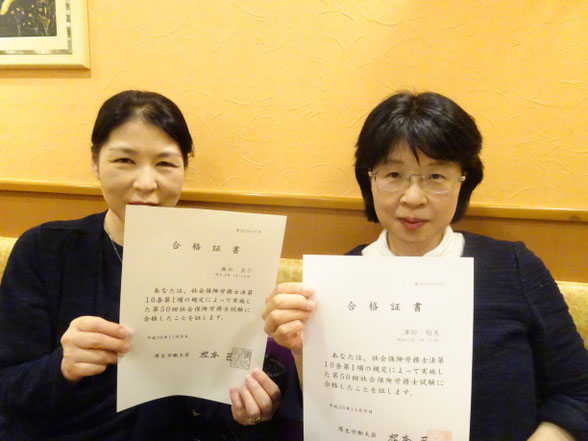 合格証書
あなたは、社会保険労務士法第
10条第1項の規定によって実施し
た第50回社会保険労務士試験に
合格したことを証します。
平成30年11月9日
厚生労働大臣
合格証書
澤田
あなたは、社会保険労務士法第
10条第1項の規定によって実施し
た第50回社会保険労務士試験に
合格したことを証します。
平成30年11月9日
厚生労働大臣